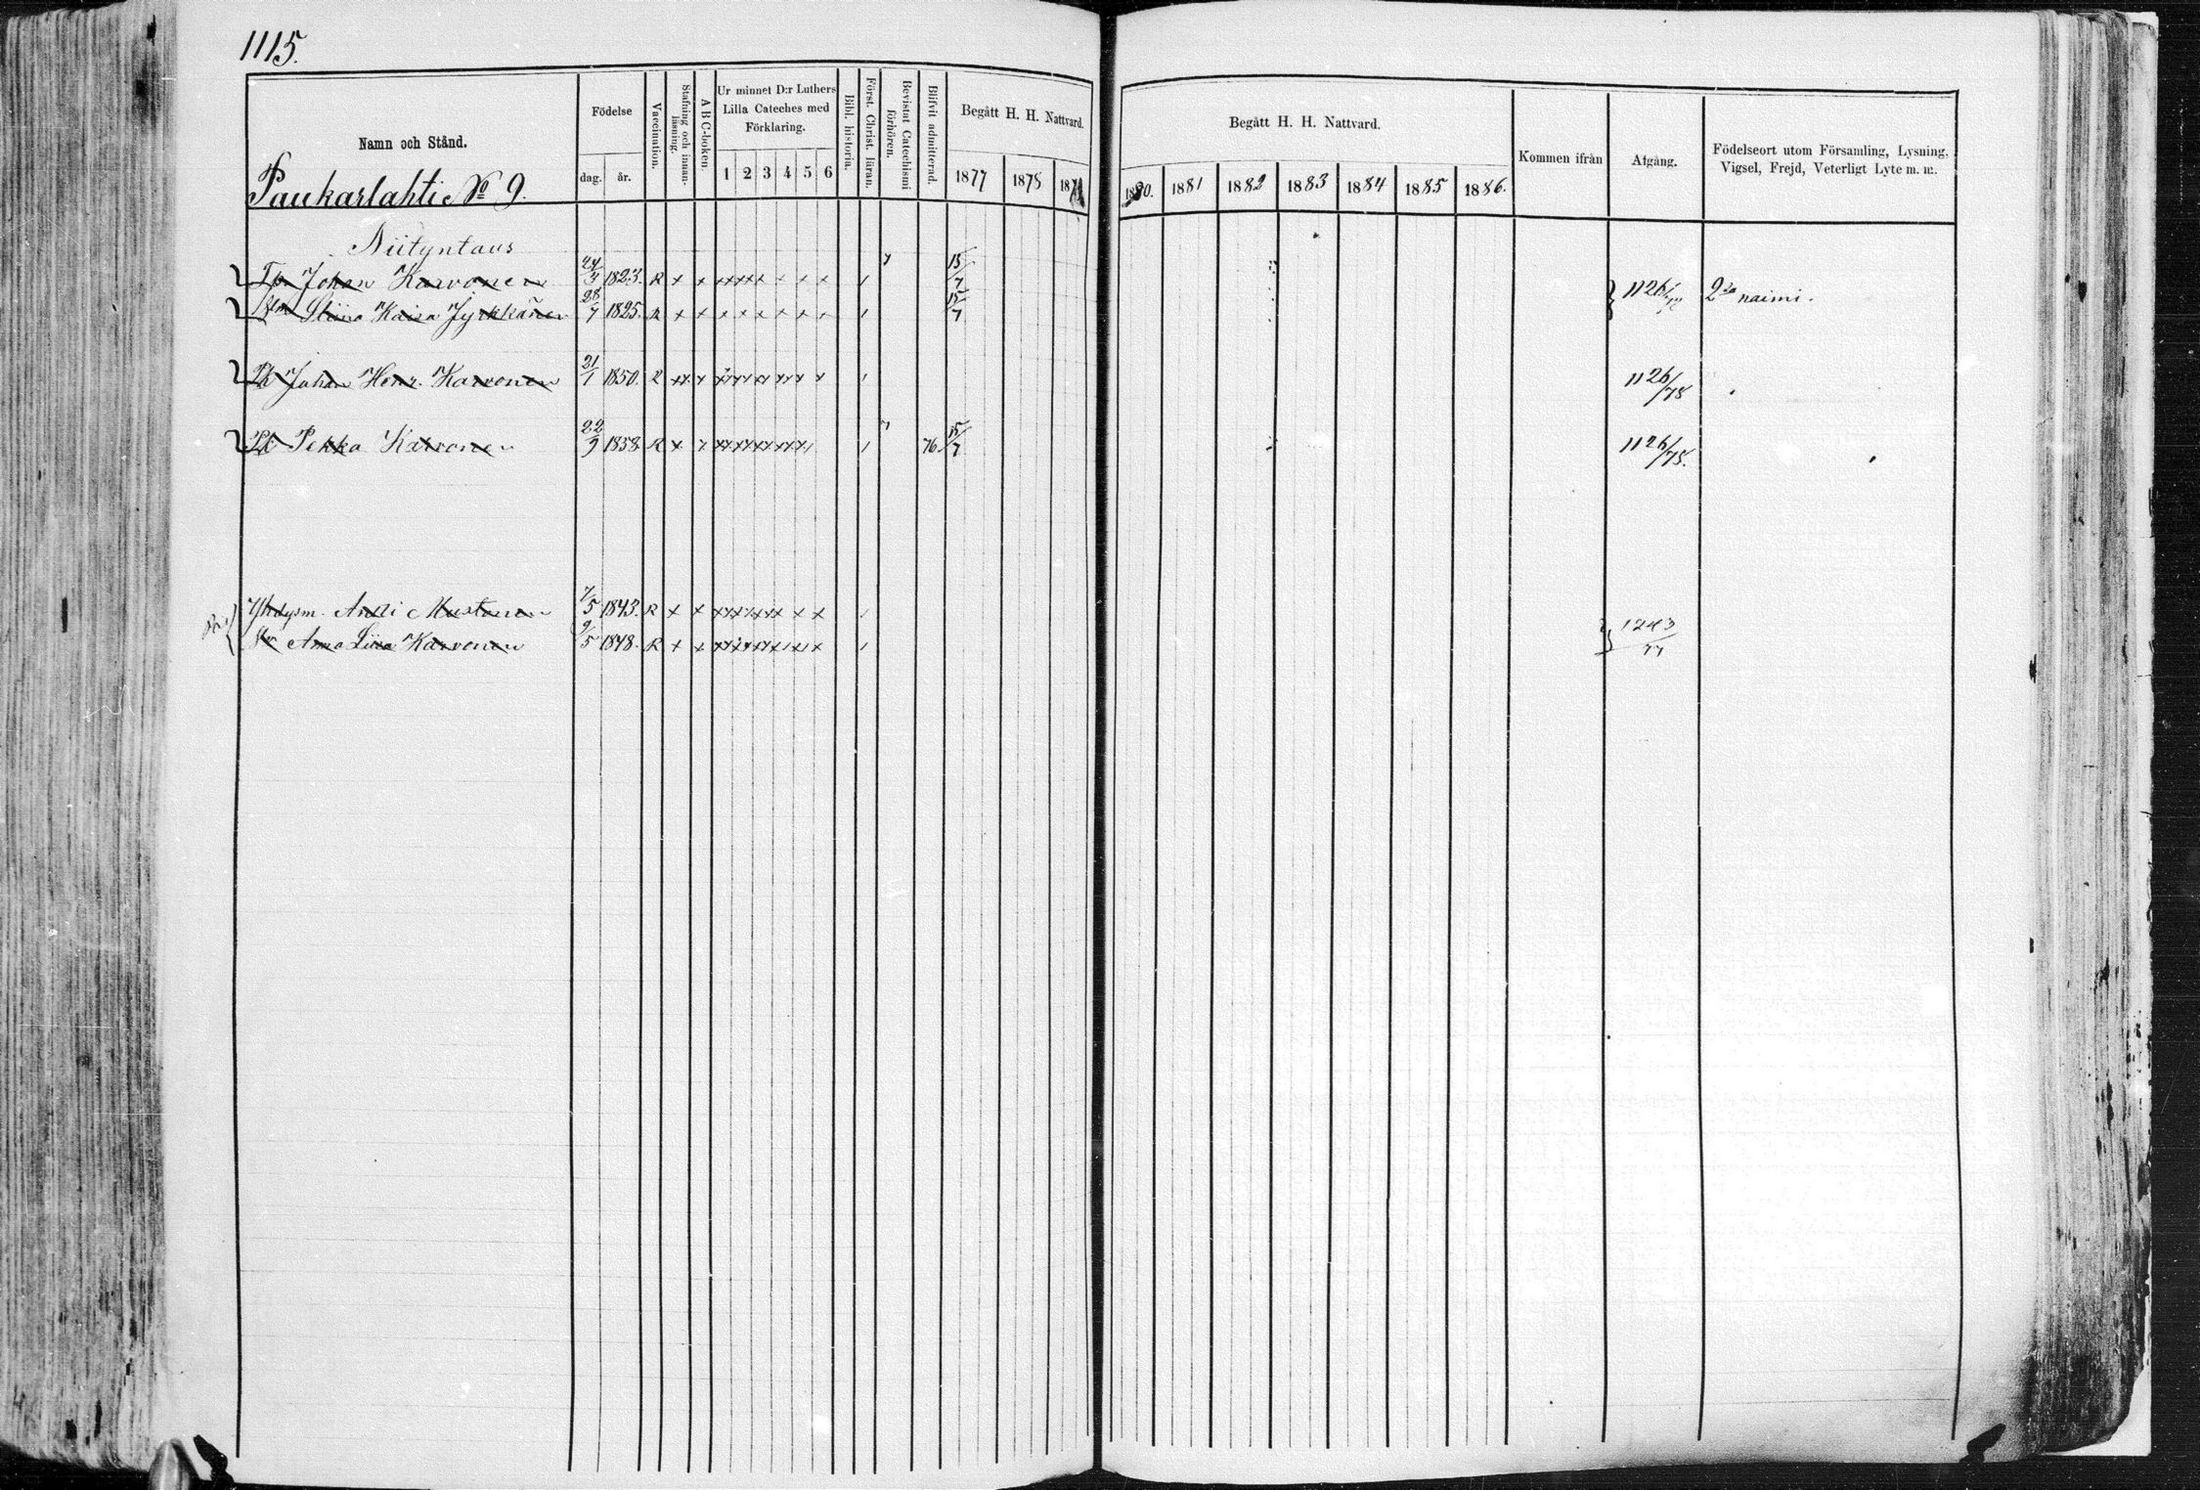 1115.
Namn och Stånd.
Födelse
dag. år.
Vaccination.
Stafning och innan-läsning.
A B C-boken.
Ur minnet D:r Luthers
Lilla Cateches med
Förklaring.
1 2 3 4 5 6
Bibl. historia.
Först. Christ. läran.
Bevistat Catechismi förhören.
Blifvit admitterad.
Begått H. H. Nattvard.
1877 1878
Begått H. H. Nattvard.
1880. 1881 1882 1883 1884 1885 1886.
Kommen ifrån
Afgång.
Födelseort utom Församling, Lysning,
Vigsel, Frejd, Veterligt Lyte m. m.
Paukarlahti No 9.
Niityntaus
Johan Karvonen 24/3 1823. R 15/7 1126/78 naimi.
Stiina Kaisa Jyrkkänen 28/7 1825. R 15/7
Johan Henr. Karvonen 21/1 1850. R 1126/78
Pekka Karvonen 22/9 1858 R 76 15/7 1126/78.
Yhdysm. Antti Mustonen 7/5 1843. R
Anna Liisa Karvonen 9/5 1848. R 1243/77